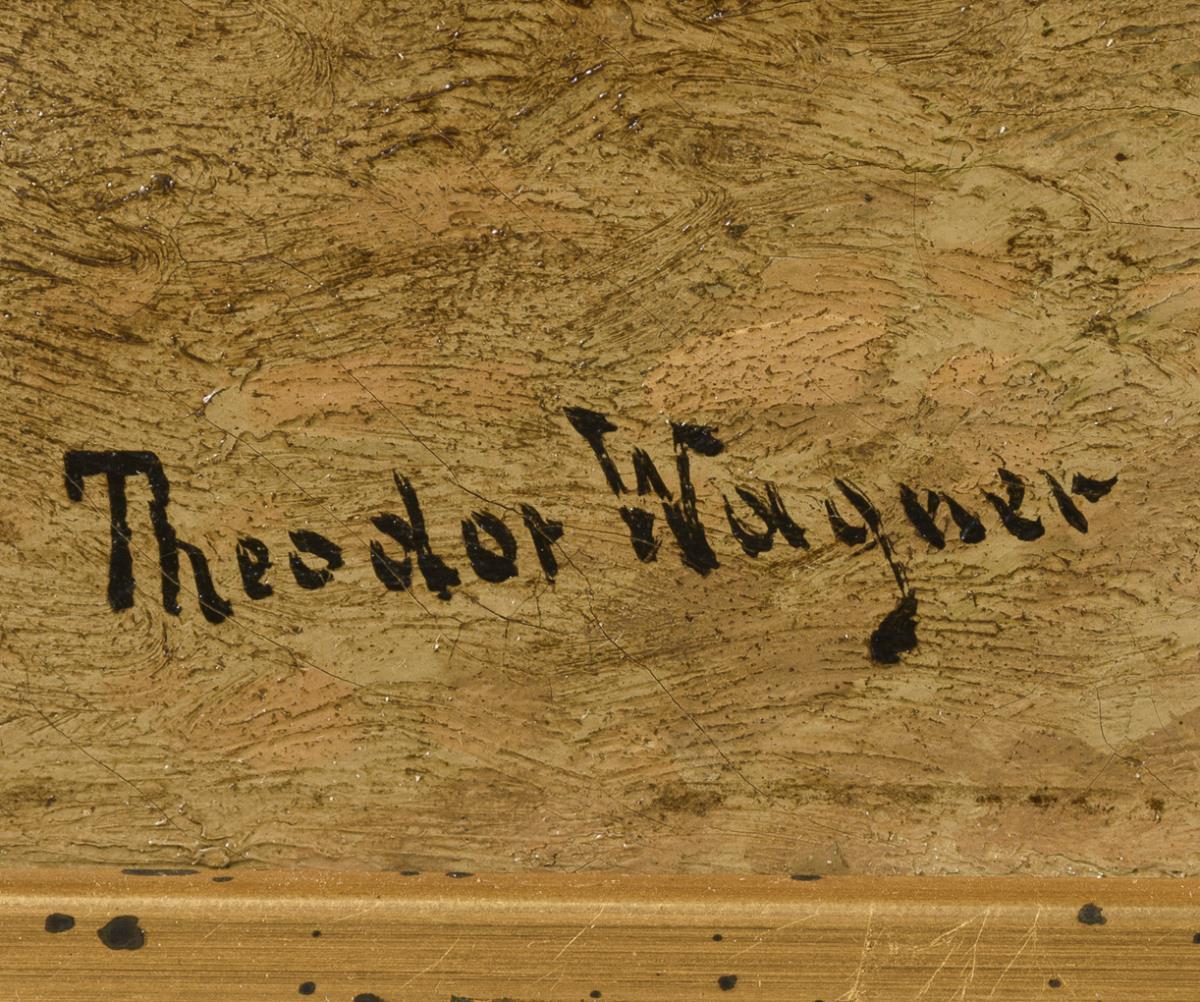 Theodor Wagner